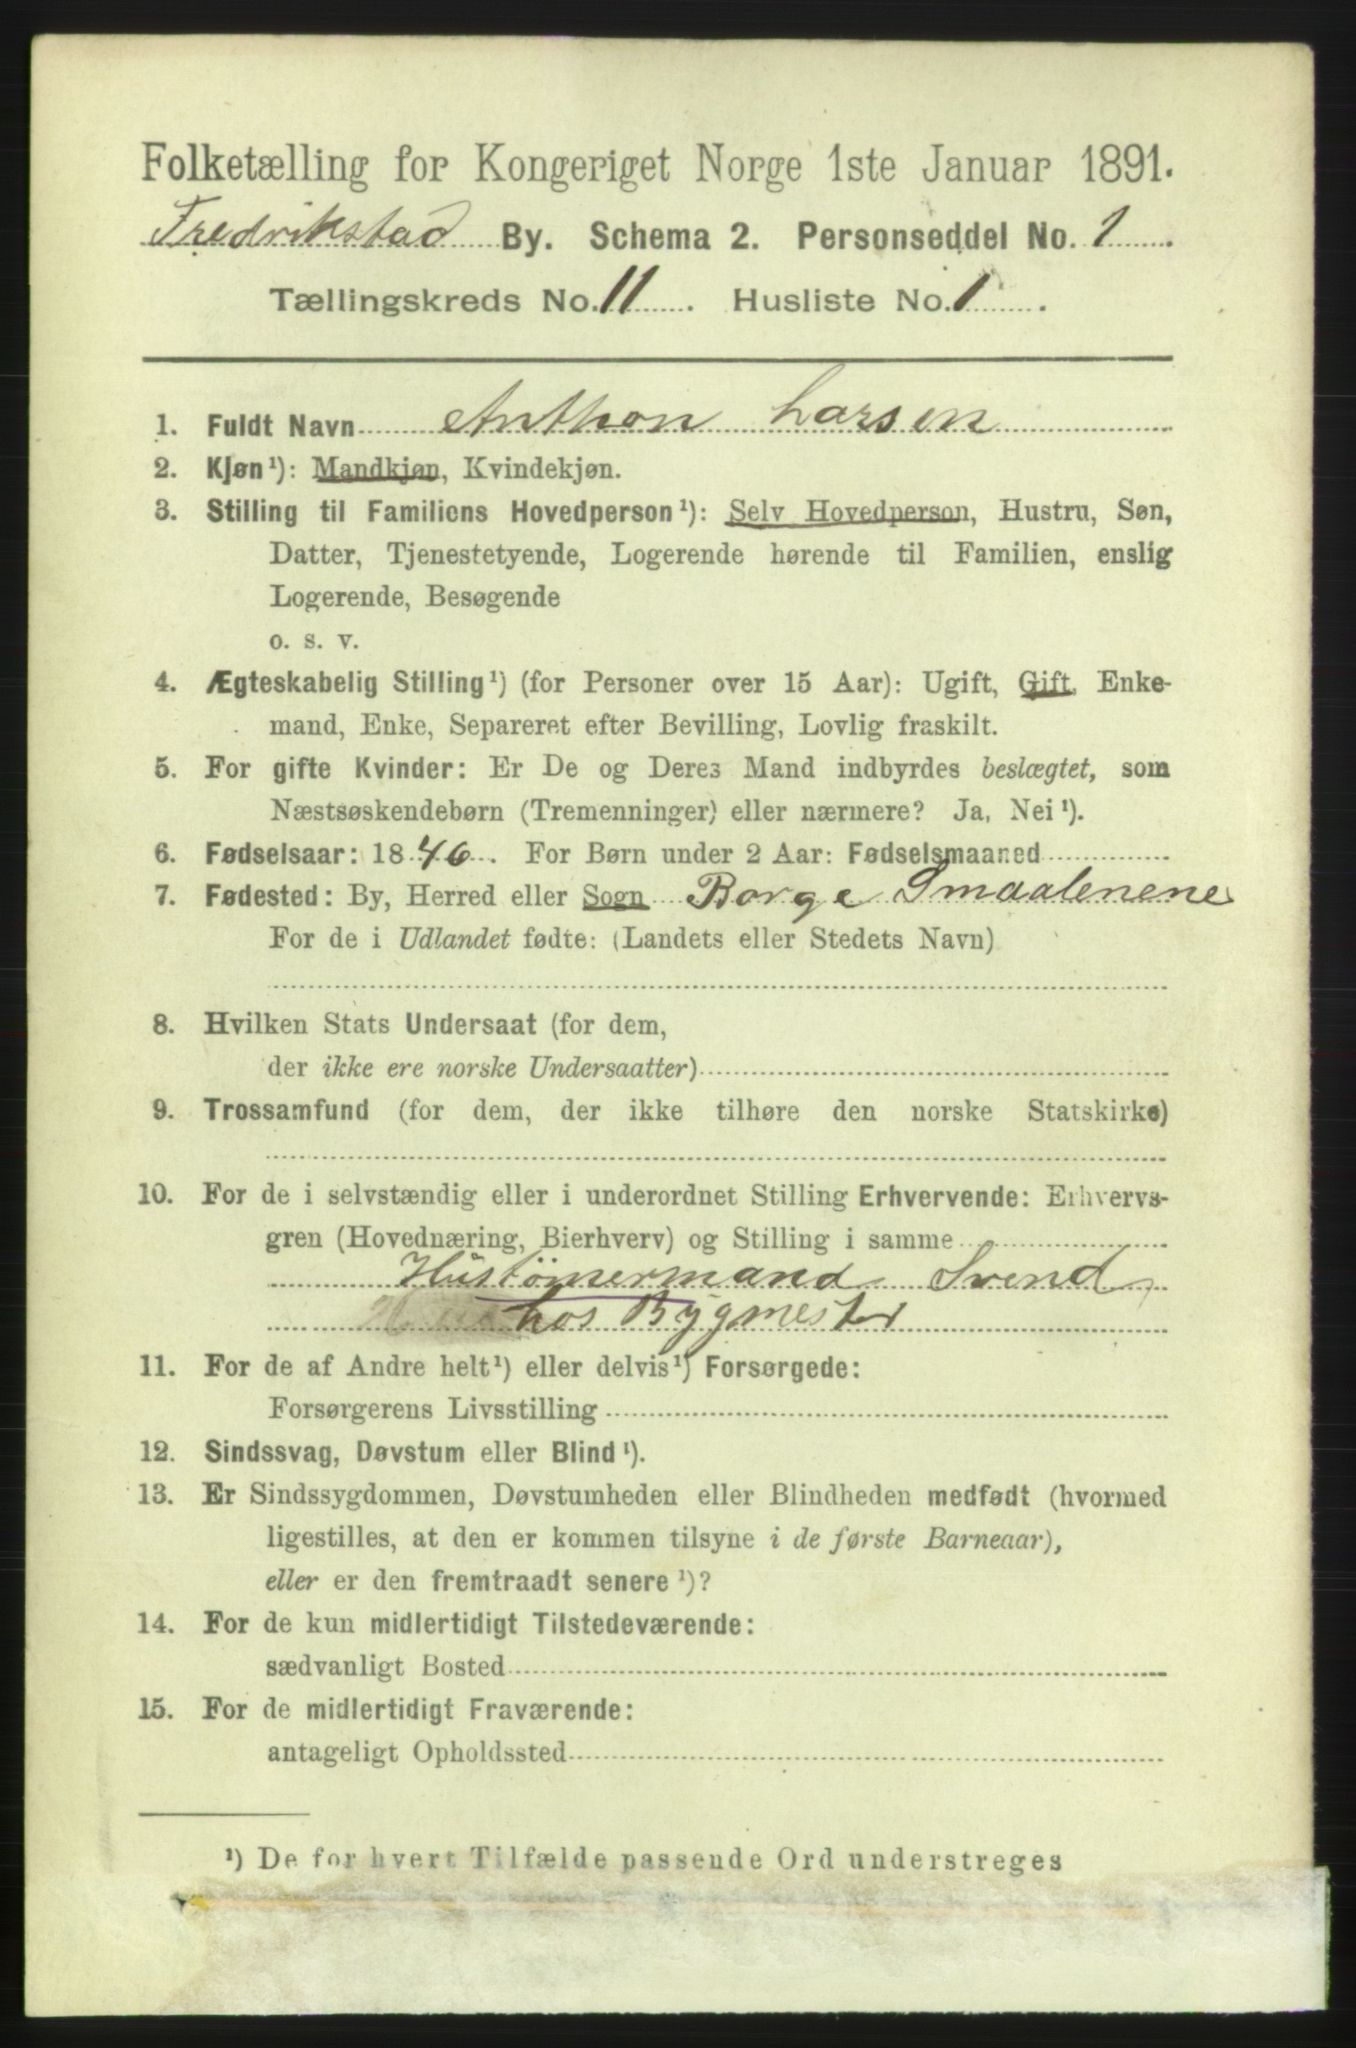 Folketælling for Kongeriget Norge 1ste Januar 1891.
Fredrikstad By. Schema 2. Personseddel No. 1.
Tællingskreds No. 11. Husliste No. 1.
1. Fuldt Navn Anthon Larsen
2. Kjøn¹): Mandkjøn, Kvindekjøn.
3. Stilling til Familiens Hovedperson¹): Selv Hovedperson, Hustru, Søn,
Datter, Tjenestetyende, Logerende hørende til Familien, enslig
Logerende, Besøgende
o. s. v.
4. Ægteskabelig Stilling¹) (for Personer over 15 Aar): Ugift, Gift, Enke-
mand, Enke, Separeret efter Bevilling, Lovlig fraskilt.
5. For gifte Kvinder: Er De og Deres Mand indbyrdes beslægtet, som
Næstsøskendebørn (Tremenninger) eller nærmere? Ja, Nei¹).
6. Fødselsaar: 1846. For Børn under 2 Aar: Fødselsmaaned
7. Fødested: By, Herred eller Sogn Borge Smaalenene
For de i Udlandet fødte: (Landets eller Stedets Navn)
8. Hvilken Stats Undersaat (for dem,
der ikke ere norske Undersaatter)
9. Trossamfund (for dem, der ikke tilhøre den norske Statskirke)
10. For de i selvstændig eller i underordnet Stilling Erhvervende: Erhvervs-
gren (Hovednæring, Bierhverv) og Stilling i samme
Hustömermand Svend
hos Bygmester
11. For de af Andre helt¹) eller delvis¹) Forsørgede:
Forsørgerens Livsstilling
12. Sindssvag, Døvstum eller Blind¹).
13. Er Sindssygdommen, Døvstumheden eller Blindheden medfødt (hvormed
ligestilles, at den er kommen tilsyne i de første Barneaar),
eller er den fremtraadt senere¹)?
14. For de kun midlertidigt Tilstedeværende:
sædvanligt Bosted
15. For de midlertidigt Fraværende:
antageligt Opholdssted
¹) De for hvert Tilfælde passende Ord understreges